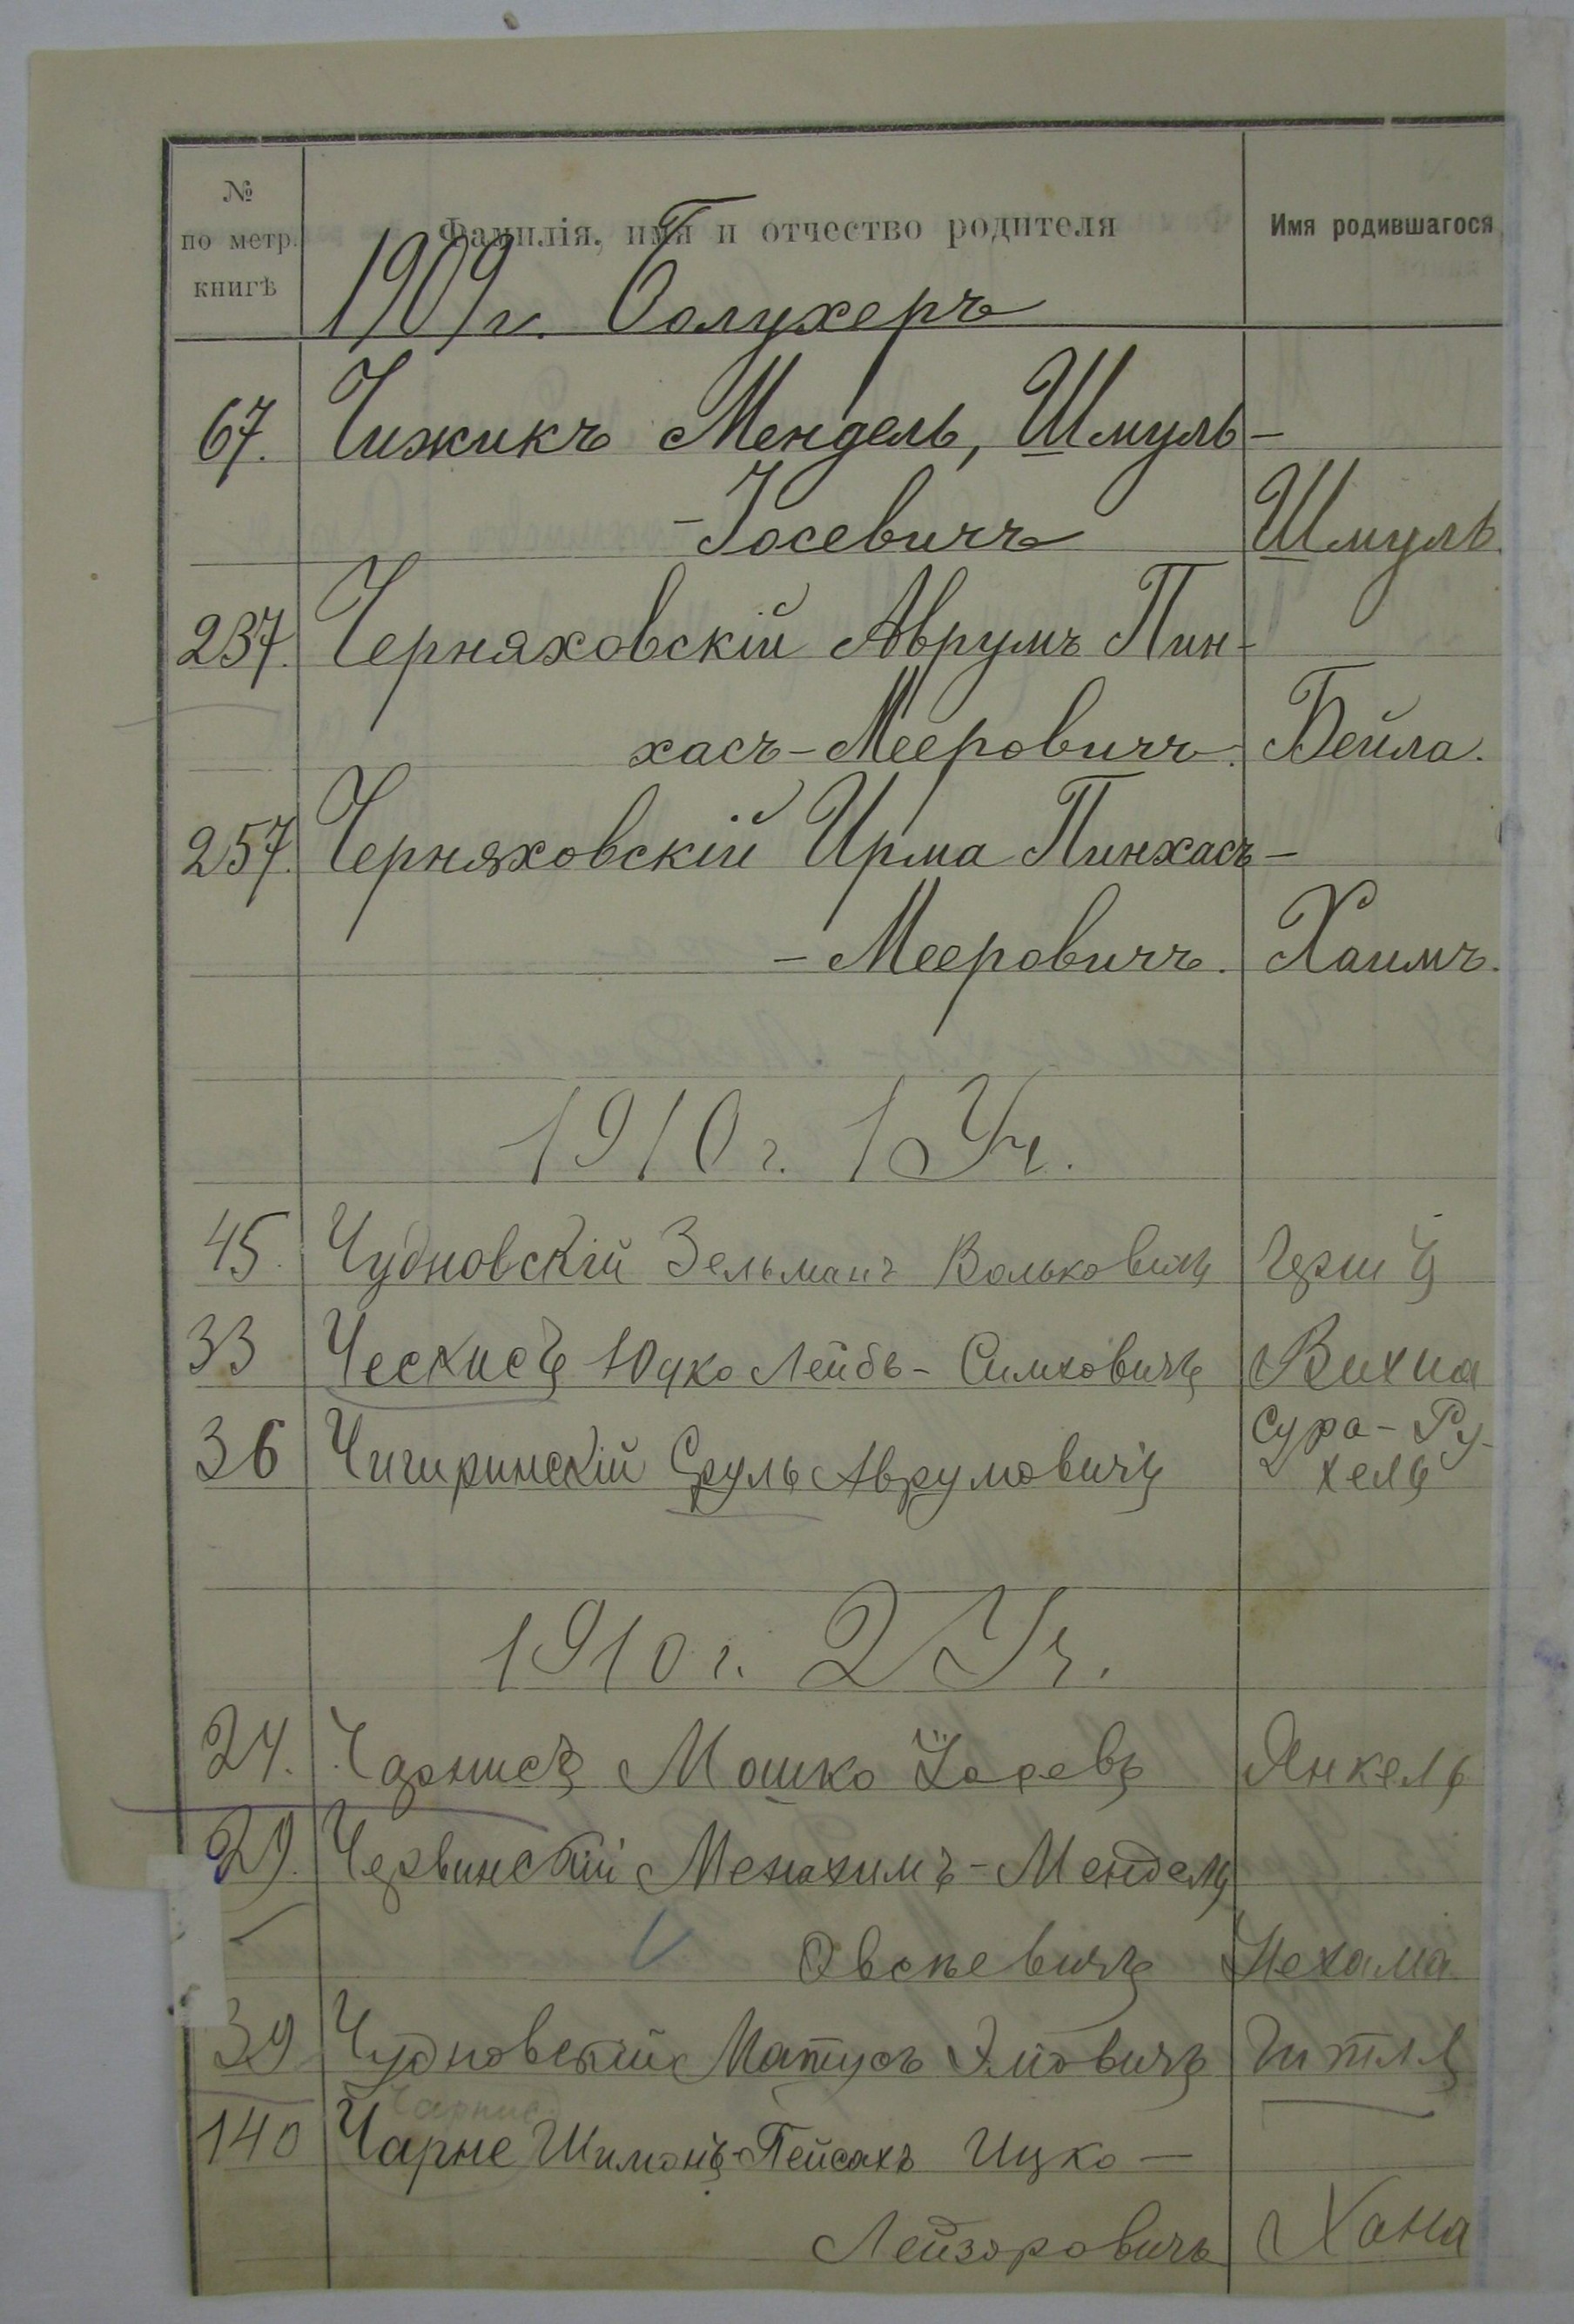 № по метр. книгѣ
Фамилія, имя и отчество родителя
Имя родившагося
1909 г.
67. Чижикъ Мендель, Шмуль-
-Іосевичъ Шмуль.
237. Черняховскій Аврумъ Пин-
хасъ-Мееровичъ. Бейла.
257. Черняховскій Ирма Пинхасъ-
-Мееровичъ. Хаимъ.
1910 г. 1 Уч.
45. Чудновскій Зельманъ Вольковичъ
33 Ческисъ Юдко Лейбъ-Симховичъ Вихна
36 Чигиринскій Сруль Аврумовичъ Сура-Ру-
хель
1910 г. 2 Уч.
24. Чарнисъ Мошко Іосевъ Янкель
29. Червинскій Менахимъ-Мендель
Овсѣевичъ Нехама
39 Чудновскій Матусъ Эліовичъ
Чарнис
140 Чарне Шимонъ-Пейсахъ Ицко-
Лейзоровичъ Хана